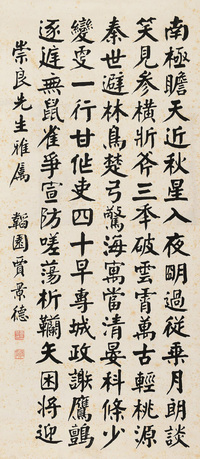 南極瞻天近秋星入夜明過從乘月朗談
笑見參橫斨斧三秊破雲霄萬古輕桃源
秦世避林鳥楚弓驚海寓當清晏科條少
變更一行甘作吏四十早專城政謝鷹鸇
逐庭無鼠雀爭宣防嗟蕩析韊矢困將迎
崇良先生雅屬 韜園賈景德